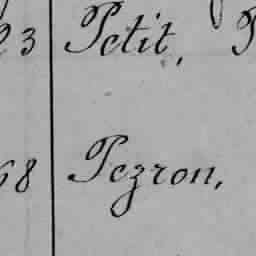 23 Petit, P
68 Pezron,